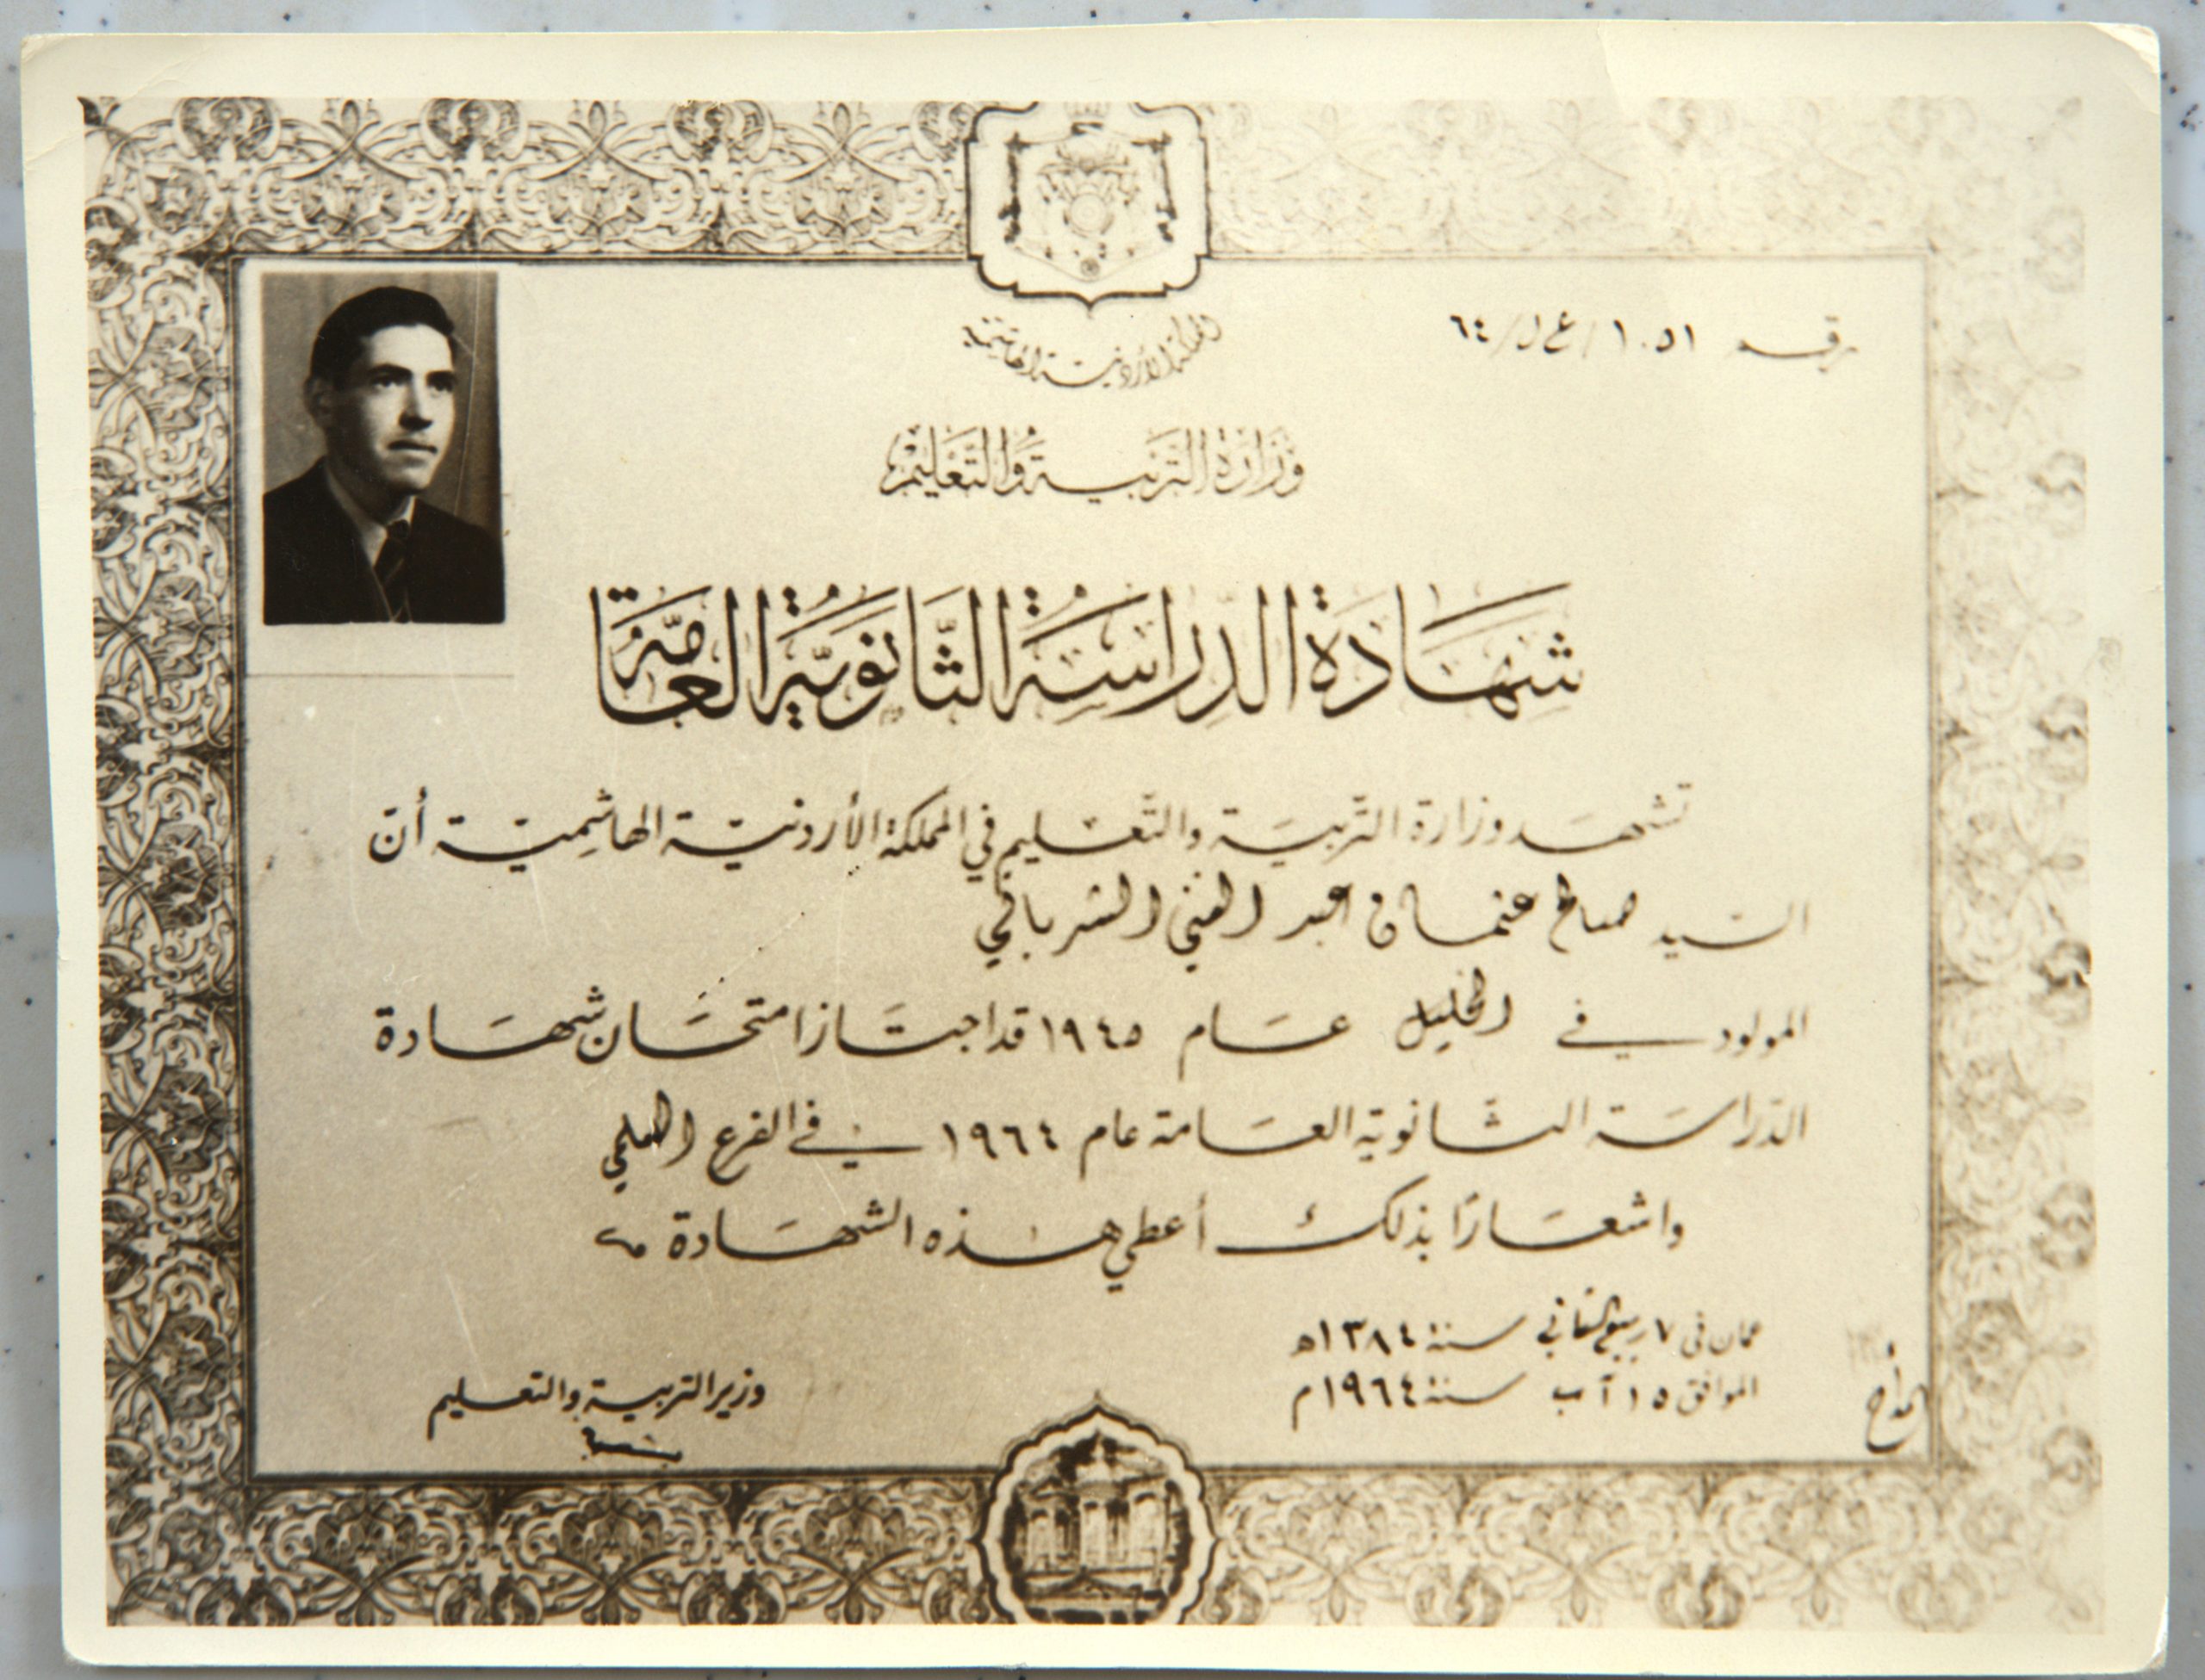 رقم ١٠٥١/ع ل/٦٤
المملكة الأردنية الهاشمية
وَزَارَةُ التَّرْبِيَةِ وَالتَّعْلِيمْ
شَهَادَةُ الدِّرَاسَةِ الثَّانَوِيَّةِ العَامَّة
تشهَد وزارة التَّربيَة والتَّعْليم في المملكة الأردنيّة الهاشِميّة أنّ
السَّيد صالح عثمان عبد الغني الشرباتي
المولود في الخليل عَام ١٩٤٥ قد اجتَاز امتحَان شهَادة
الدّراسَة الثَّانوية العَامة عام ١٩٦٤ في الفرع العلمي
واشعَارًا بذلك أعطي هذه الشهَادة
عمان في ٧ ربيع الثاني سنة ١٣٨٤ه
الموافق ١٥ آب سنة ١٩٦٤م
وزير التربية والتعليم